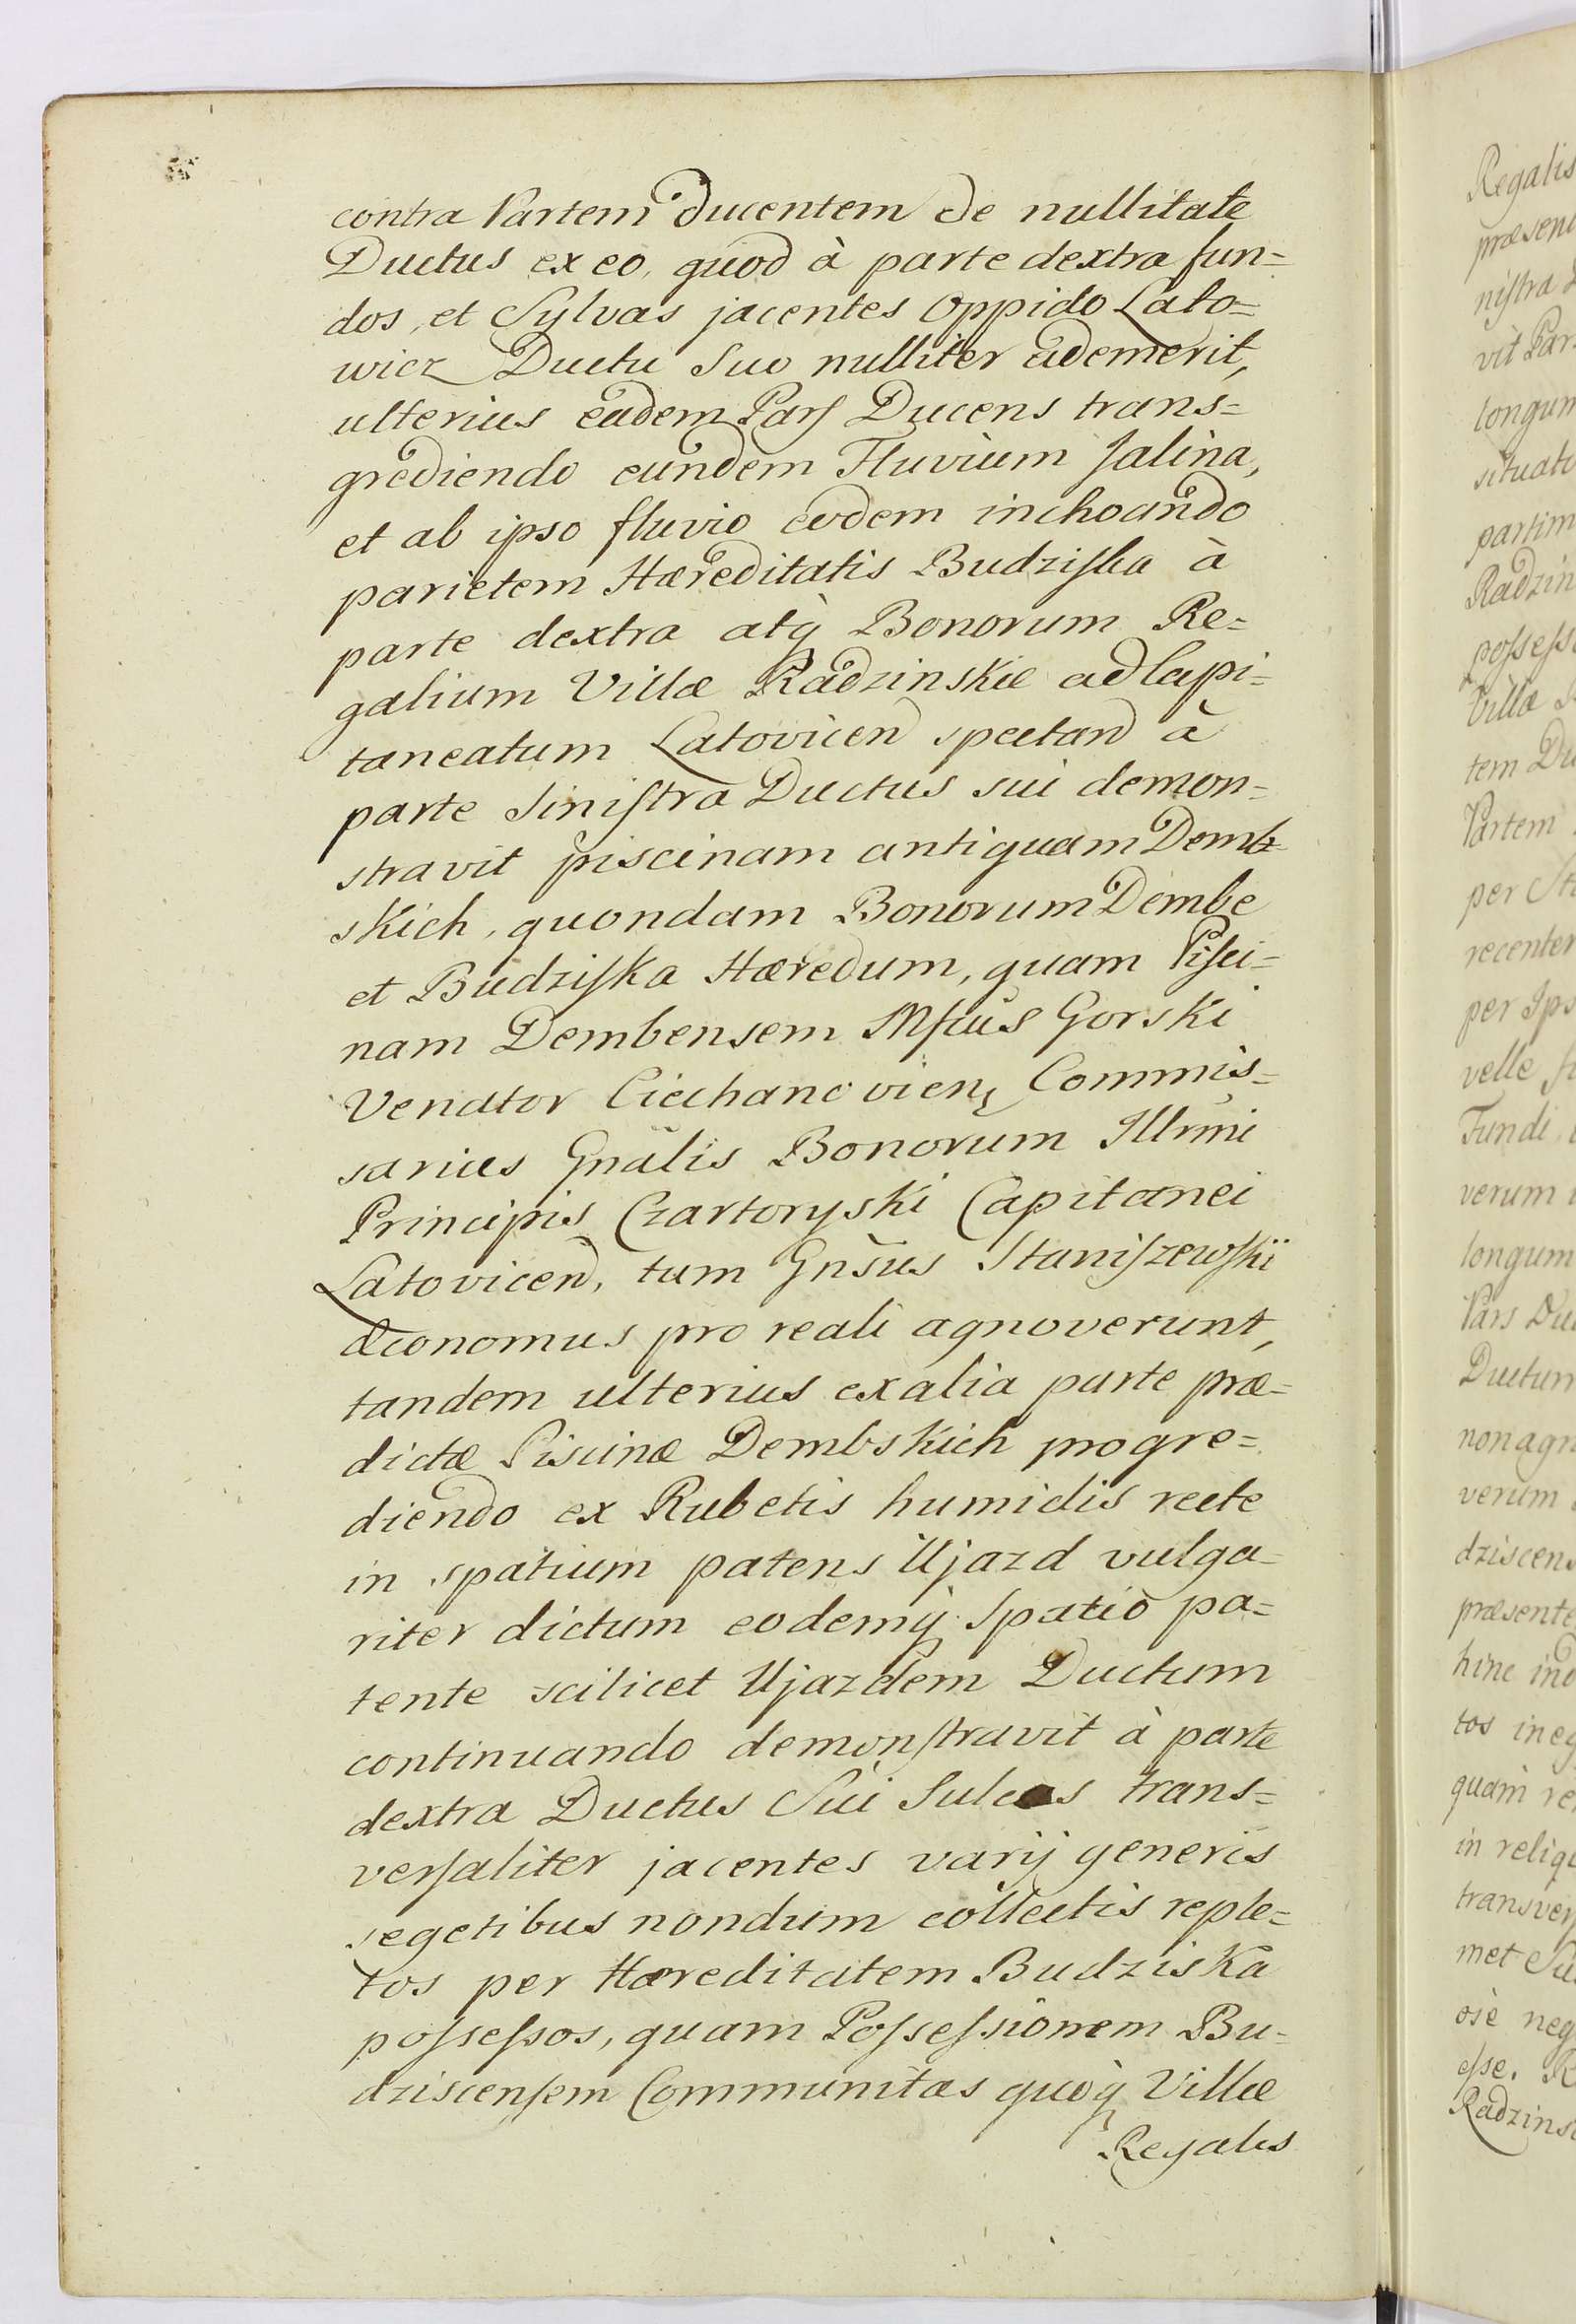 contra Partem ducentem de nullitate
Ductus ex eo, quod à parte dextra fun=
dos, et Sylvas jacentes Oppido Lato=
wicz Ductu Suo nulliter ademerit,
ulterius eadem Pars Ducens trans=
grediendo eundem Fluvium Jalina,
et ab ipso fluvio eodem inchoando
parietem Hæreditatis Budziska à
parte dextra atq̀ Bonorum Re=
galium Villæ Radzinskie ad Capi=
taneatum Latovicen̄ spectan̄ à
parte Sinistra Ductus sui demon=
stravit piscinam antiquam Demb=
skich, quondam Bonorum Dembe
et Budziska Hæredum, quam Pisci=
nam Dembensem Mfcus Gorski
Venator Ciechanovien̄ Commis=
sarius Gnālis Bonorum Illrmi
Principis Czartoryski Capitanei
Latovicen̄, tum Gnsus Staniszewskii
Œconomus pro reali agnoverunt,
tandem ulterius ex alia parte præ=
dictæ Piscinæ Dembskich progre=
diendo ex Rubetis humidis recte
in spatium patens Ujazd vulga=
riter dictum eodemq̀ Spatio pa=
tente scilicet Ujazdem Ductum
continuando demonstravit à parte
dextra Ductus Sui Sulcos trans=
versaliter jacentes varij generis
segetibus nondum collectis reple=
tos per Hæreditatem Budziska
possessos, quam Possessionem Bu=
dziscensem Communitas quoq̀ Villæ
Regalis
Regalis
præsen
nistra
vit Par
longum
situato
partim
Radzin
possess
Villæ
tem Du
Partem
per St
recenter
per Ips
velle
Fundi
verum
longum
Pars Du
Ductum
non agn
verum
dziscens
præsente
hinc ind
tos in eq
quam re
in reliq
transver
met Su
oīe neg
esse. R
Radzins